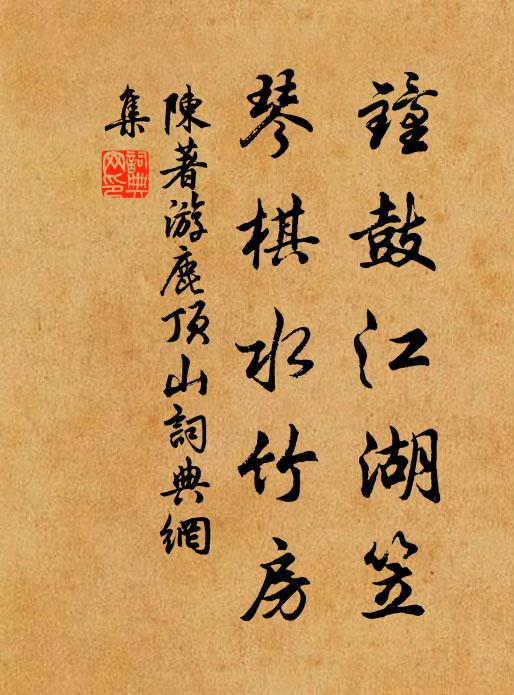 鐘鼓江湖笠
琴棋水竹房
陳著游鹿頂山詞典網
集
詞典網印